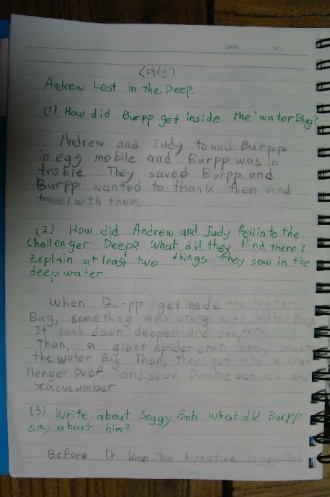 Andrew Lost in the Deep.
(1) How did Burpp get inside the water Bug?
Andrew and Judy found Burpp
in egg mobile and Burpp was in
troble. They saved Burpp and
Burpp wanted to thank them and
travel with them.
(2) How did Andrew and Judy fell into the
Challenger Deep? What did they find there?
Explain at least two things they saw in the
deep water.
When Burpp get inside the Water
Bug, something was wrong with Water Bug.
It sunk down deeper and deeper
Than, a giant spider crab
the Water Bug. Than, they
llenger Deep and saw Dumbo octopus and
seacucumber
(3) Write about Soggy Bob. What did Burpp
say about him?
Before Dr. Kron Tox Soggy Bob